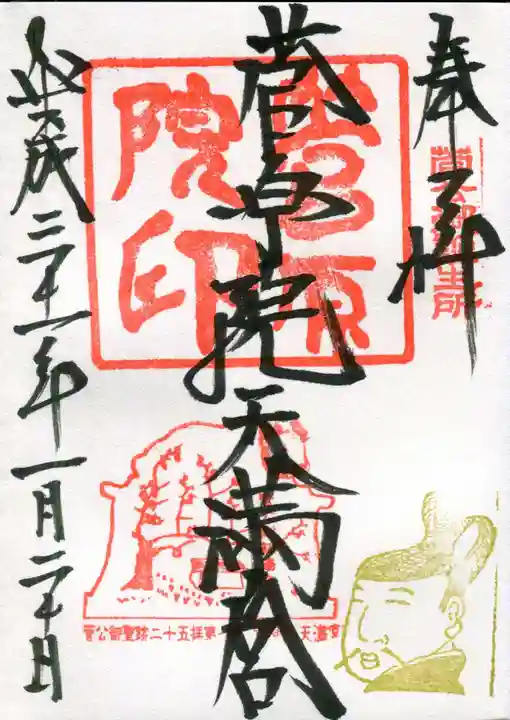 奉拝
菅公御誕生所
菅原院天満宮
菅原院印
平成三十一年一月二十日
菅公御聖蹟二十五拝第一